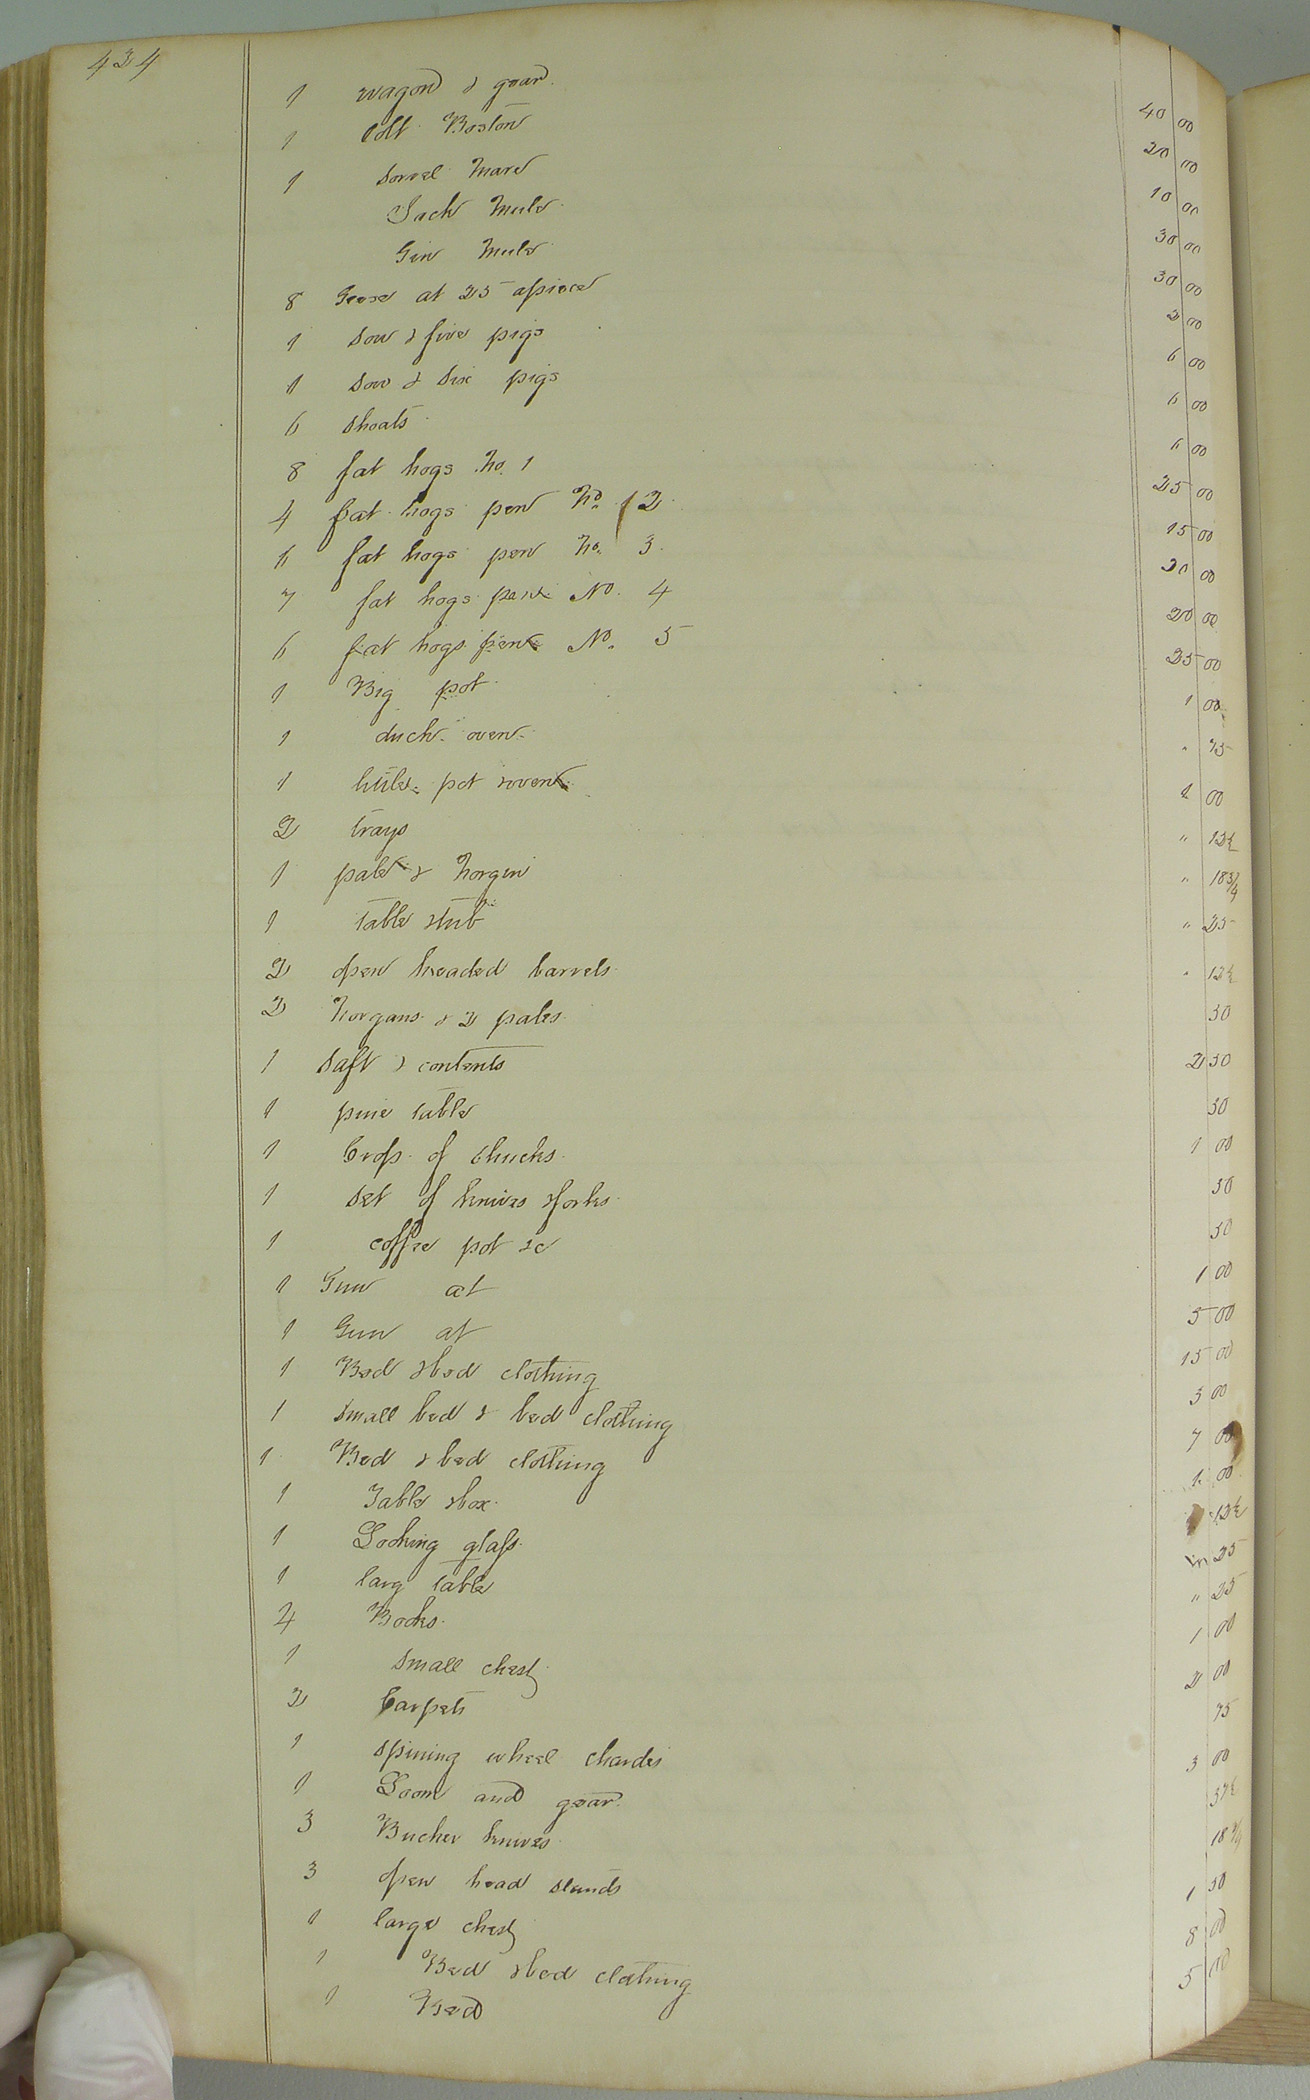 434
1 wagon & gear 40 00
1 Colt Boston 20 00
1 sorrel Mare 10 00
Jack Mule 30 00
Gin Mule 30 00
8 Geese at 25 apiece 2 00
1 sow & five pigs 6 00
1 sow & six pigs 6 00
6 shoats 6 00
8 fat hogs No. 1 25 00
4 fat hogs pen No. 2 15 00
6 fat hogs pen No. 3 20 00
7 fat hogs pen No. 4 20 00
6 fat hogs pen No. 5 25 00
1 Big pot 1 00
1 duch oven " 75
1 little pot & oven 1 00
2 trays " 12½
1 pale & Norgin " 18¾
1 table & tub " 25
2 open headed barrels " 12½
2 Norgans & 2 pales 50
1 saft & contents 2 50
1 pine table 50
1 Crop of Shucks 1 00
1 set of knives & forks 50
1 coffee pot &c 50
1 Gun at 1 00
1 Gun at 5 00
1 Bed & bed clothing 15 00
1 small bed & bed clothing 3 00
1 Bed & bed clothing 7 00
1 Table & box 1 00
1 Looking glass 12½
1 larg table 25
4 Books " 25
1 small chest 1 00
2 Carpets 2 00
1 spining wheel & cards 75
1 Loom and gear 3 00
3 Bucher knives 37½
3 open head stands 18¾
1 large chest 1 50
1 Bed & bed clothing 8 00
1 Bed 5 00